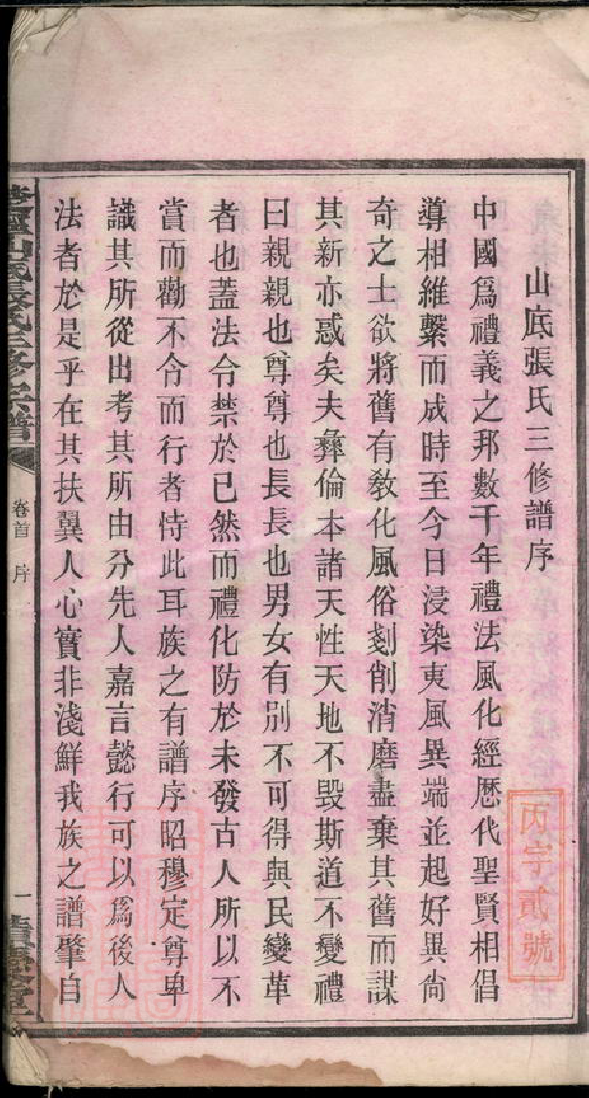 山底張氏三修譜序
中國爲禮義之邦數千年禮法風化經歷代聖賢相倡
導相維繫而成時至今日浸染夷風異端並起好異尙
奇之士欲將舊有敎化風俗剗削消磨盡棄其舊而謀
其新亦惑矣夫彝倫本諸天性天地不毀斯道不變禮
曰親親也尊尊也長長也男女有別不可得與民變革
者也蓋法令禁於已然而禮化防於未發古人所以不
賞而勸不令而行者恃此耳族之有譜序昭穆定尊卑
識其所從出考其所由分先人嘉言懿行可以爲後人
法者於是乎在其扶翼人心實非淺鮮我族之譜肇自
山底張氏三修宗譜
卷首
序
一
丙字貳號